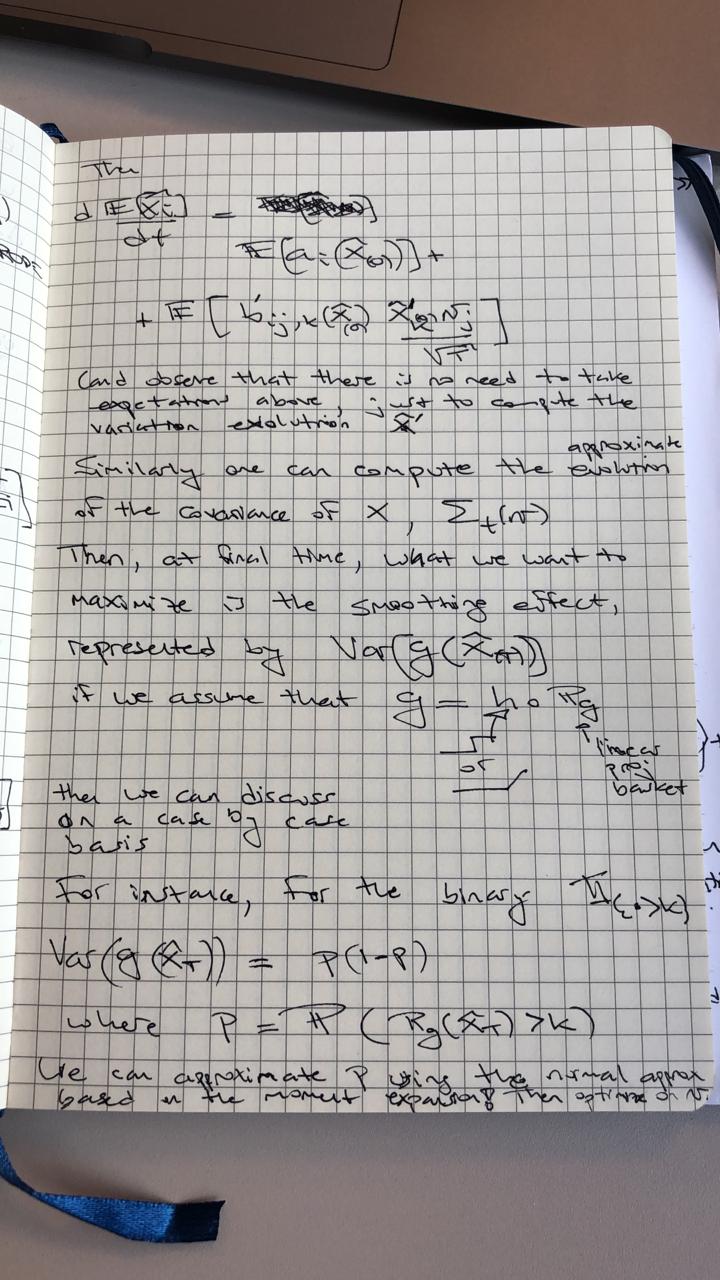 Then
d 𝔼[X̂ᵢ] / dt =
𝔼[aᵢ(X̂₍₀₎)] +
+ 𝔼[ b'ᵢⱼ,ₖ(X̂₍₀₎) X̂'₍ₖ₎ vⱼ / √T ]
(and observe that there is no need to take
expctations above, just to compute the
variation exolution X̂'
approximate
Similarly one can compute the evolution
of the covariance of X, Σₜ(v)
Then, at final time, what we want to
maximize is the smoothing effect,
represented by Var(g(X̂₍T₎))
if we assume that g = h ∘ Pg
linear
or proj
basket
then we can discuss
on a case by case
basis
For instance, for the binary 𝟙{·>K}
Var(g(X̂_T)) = p(1-p)
where p = ℙ(Pg(X̂_T) > K)
We can approximate p using the normal approx
based on the moment expansion! Then optimize on v.